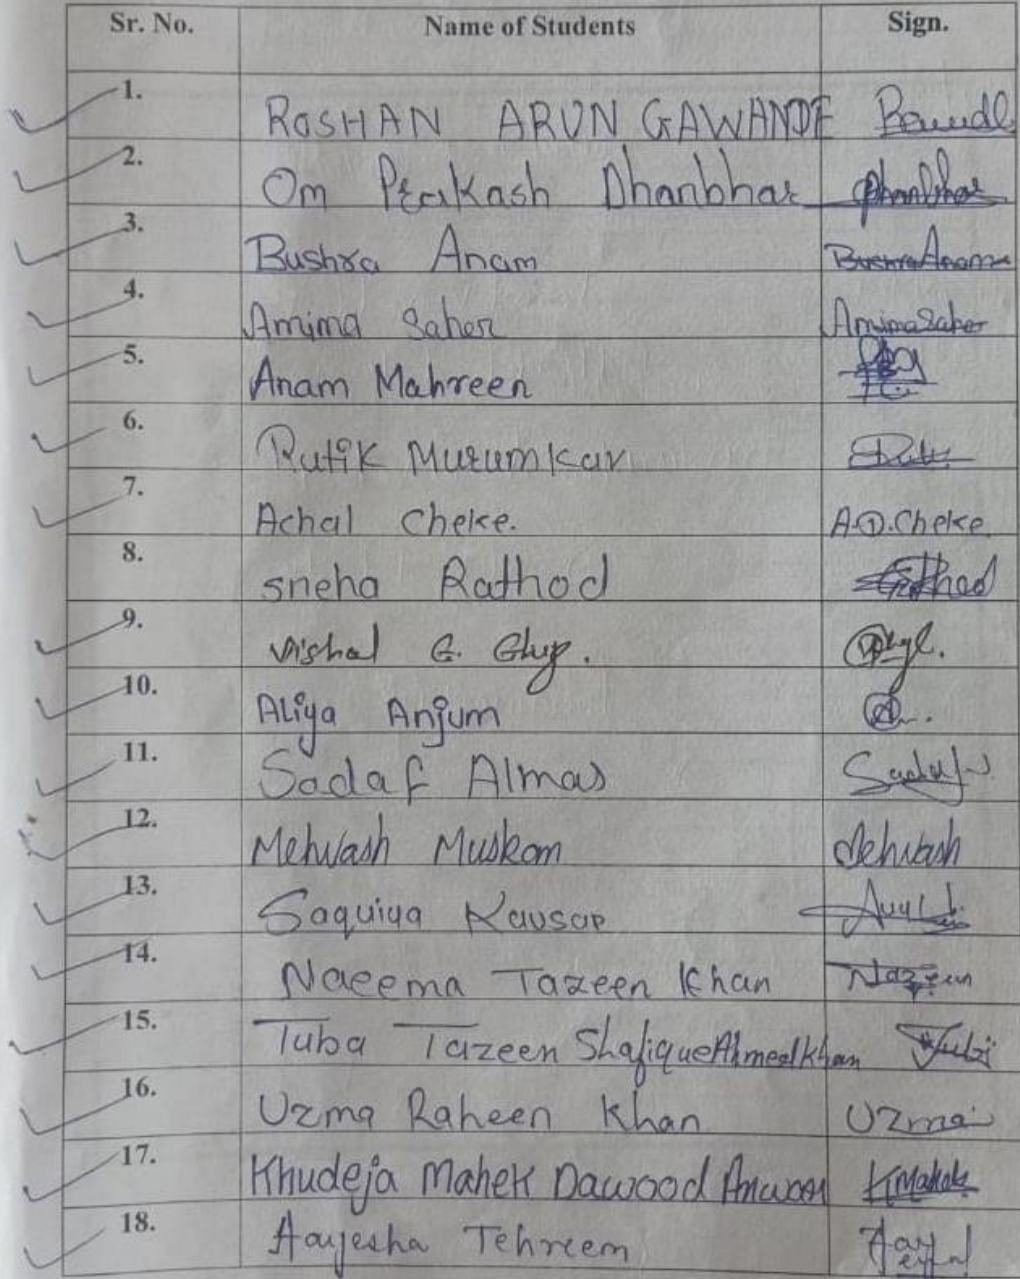 Sr. No. Name of Students Sign.
1. ROSHAN ARUN GAWANDE
2. Om Prakash Dhanbhar Dhanbhar
3. Bushra Anam Bushra Anam
4. Amima Saher Amima Saher
5. Anam Mahreen
6. Rutik Murumkar
7. Achal Cheke. A.D.Cheke
8. sneha Rathod
9. Vishal G.
10. Aliya Anjum
11. Sadaf Almas Sadaf
12. Mehvash Muskan Mehvash
13. Saquiya Kausar
14. Naeema Tazeen Khan Nazeen
15. Tuba Tazeen Shafique Ahmed Khan Tubi
16. Uzma Raheen Khan Uzma
17. Khudeja Mahek Dawood Anwar K.Mahek
18. Aayesha Tehreem